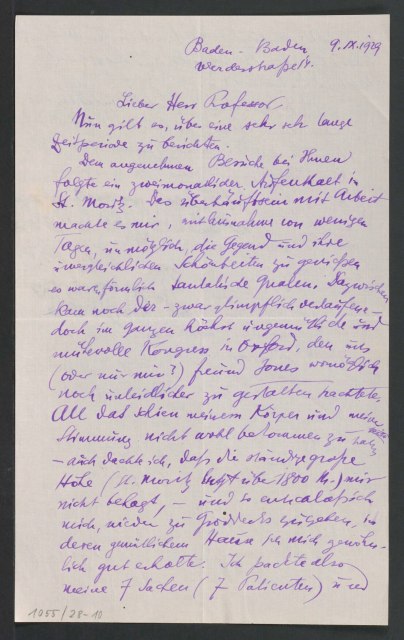 Baden-Baden, 9.IX.1929
Werderstraße 14.
Lieber Herr Professor
Nun gilt es, über eine sehr sehr lange
Zeitperiode zu berichten.
Dem angenehmen Besuche bei Ihnen
folgte ein zweimonatlicher Aufenthalt in
St. Moritz. Das überhäuftsein mit Arbeit
machte es mir, mit Ausnahme von wenigen
Tagen, unmöglich, die Gegend und ihre
unvergleichlichen Schönheiten zu genießen
es waren förmlich Tantalische Qualen. Dazwischen
kam noch der - zwar glimpflich verlaufene -
doch im ganzen höchst ungemütliche und
mühevolle Kongress in Oxford, den uns
(oder nur mir?) freund Jones womöglich
noch unleidlicher zu gestalten trachtete.
All das schien meinem Körper und meiner
Stimmung nicht wohl bekommen zu
- auch dachte ich, daß die ständige große
Höhe (St. Moritz liegt über 1800 M.) mir
nicht behagt, - und so entschloß ich
mich, wieder zu Groddecks zu gehen, in
deren gemütlichem Hause ich mich gewöhn-
lich gut erholte. Ich packte also
meine 7 Sachen (7 Patienten) und
1055/28-10